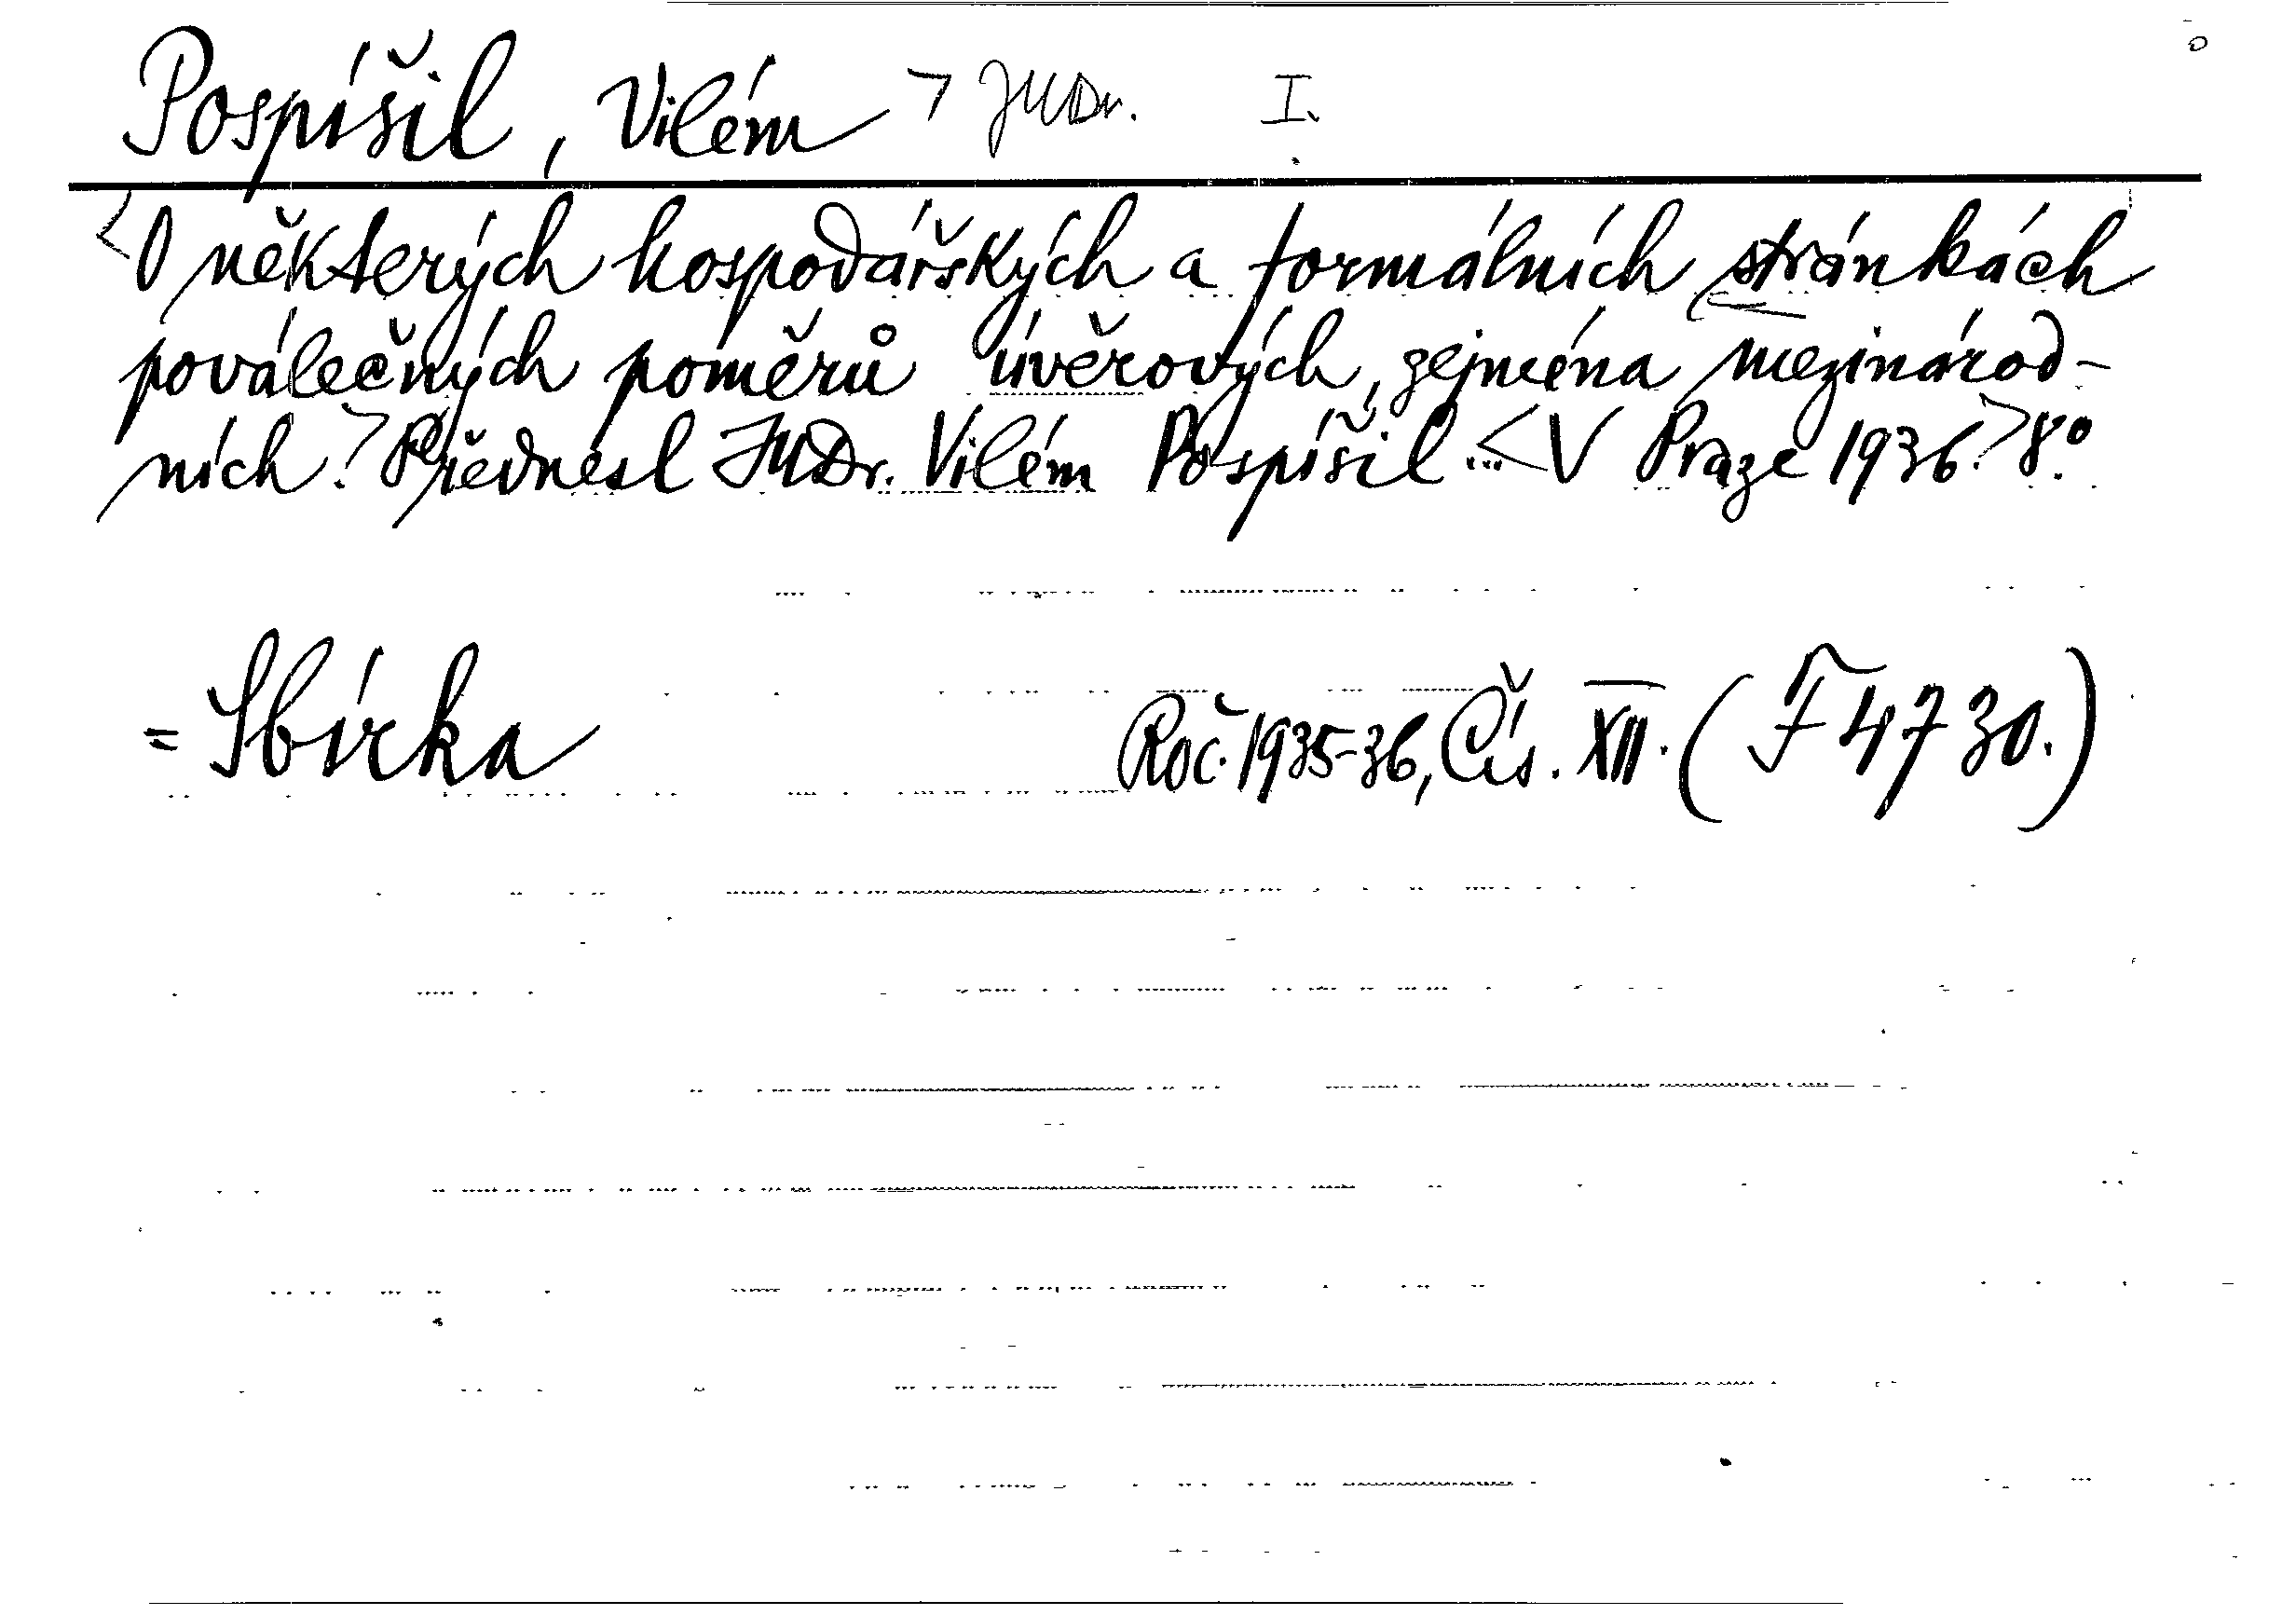 Pospíšil, Vilém > JUDr. I.
<O některých hospodářských a formálních stránkách
poválečných poměrů úvěrových, zejména mezinárod-
ních.> Přednesl JUDr. Vilém Pospíšil ... <V Praze 1936.> 8°.
= Sbírka Roč. 1935-36, Čís. XII. (F 4730.)